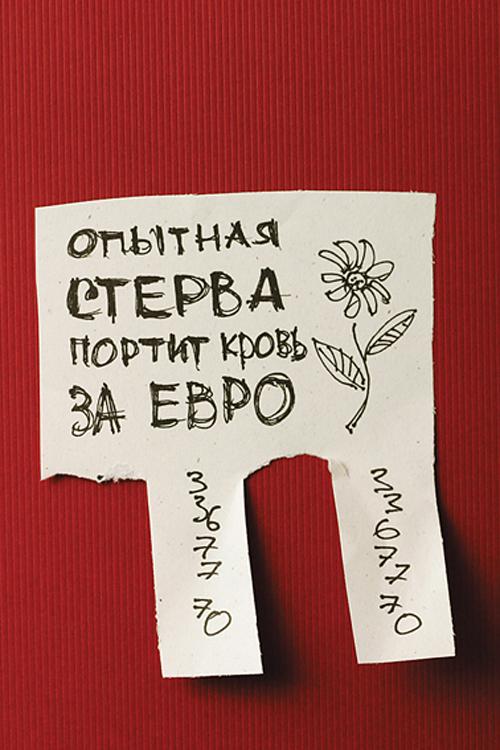 ОПЫТНАЯ
СТЕРВА
ПОРТИТ КРОВЬ
ЗА ЕВРО
3
3
6
7
7
7
0
3
3
6
7
7
7
0